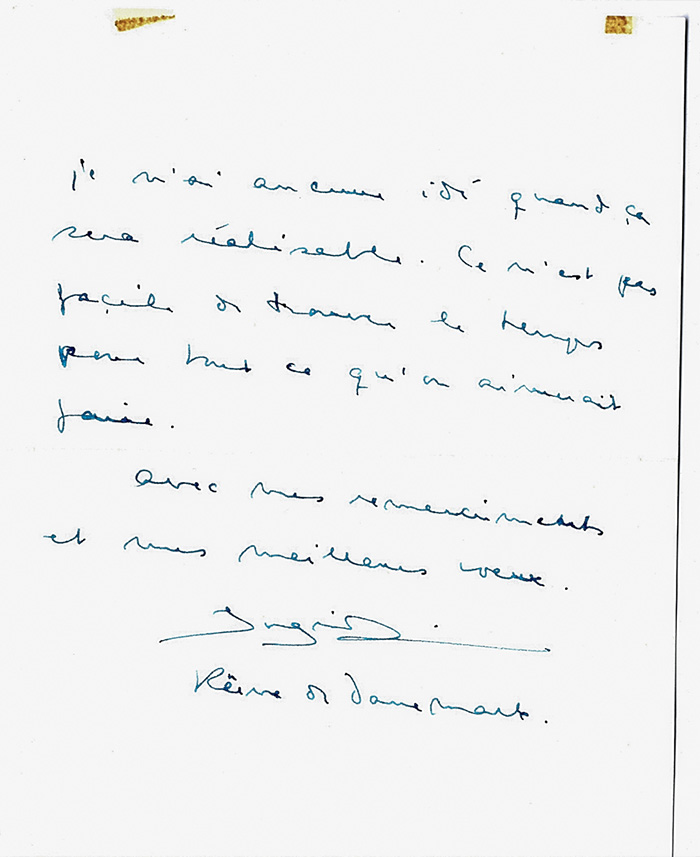 je n'ai aucune idé quand ça
sera réalisable. Ce n'est pas
façile de trouver le temps
pour tout ce qu'on aimerait
faire.
avec mes remercîments
et mes meilleurs voeux.
Ingrid
Rêine de Danemark.